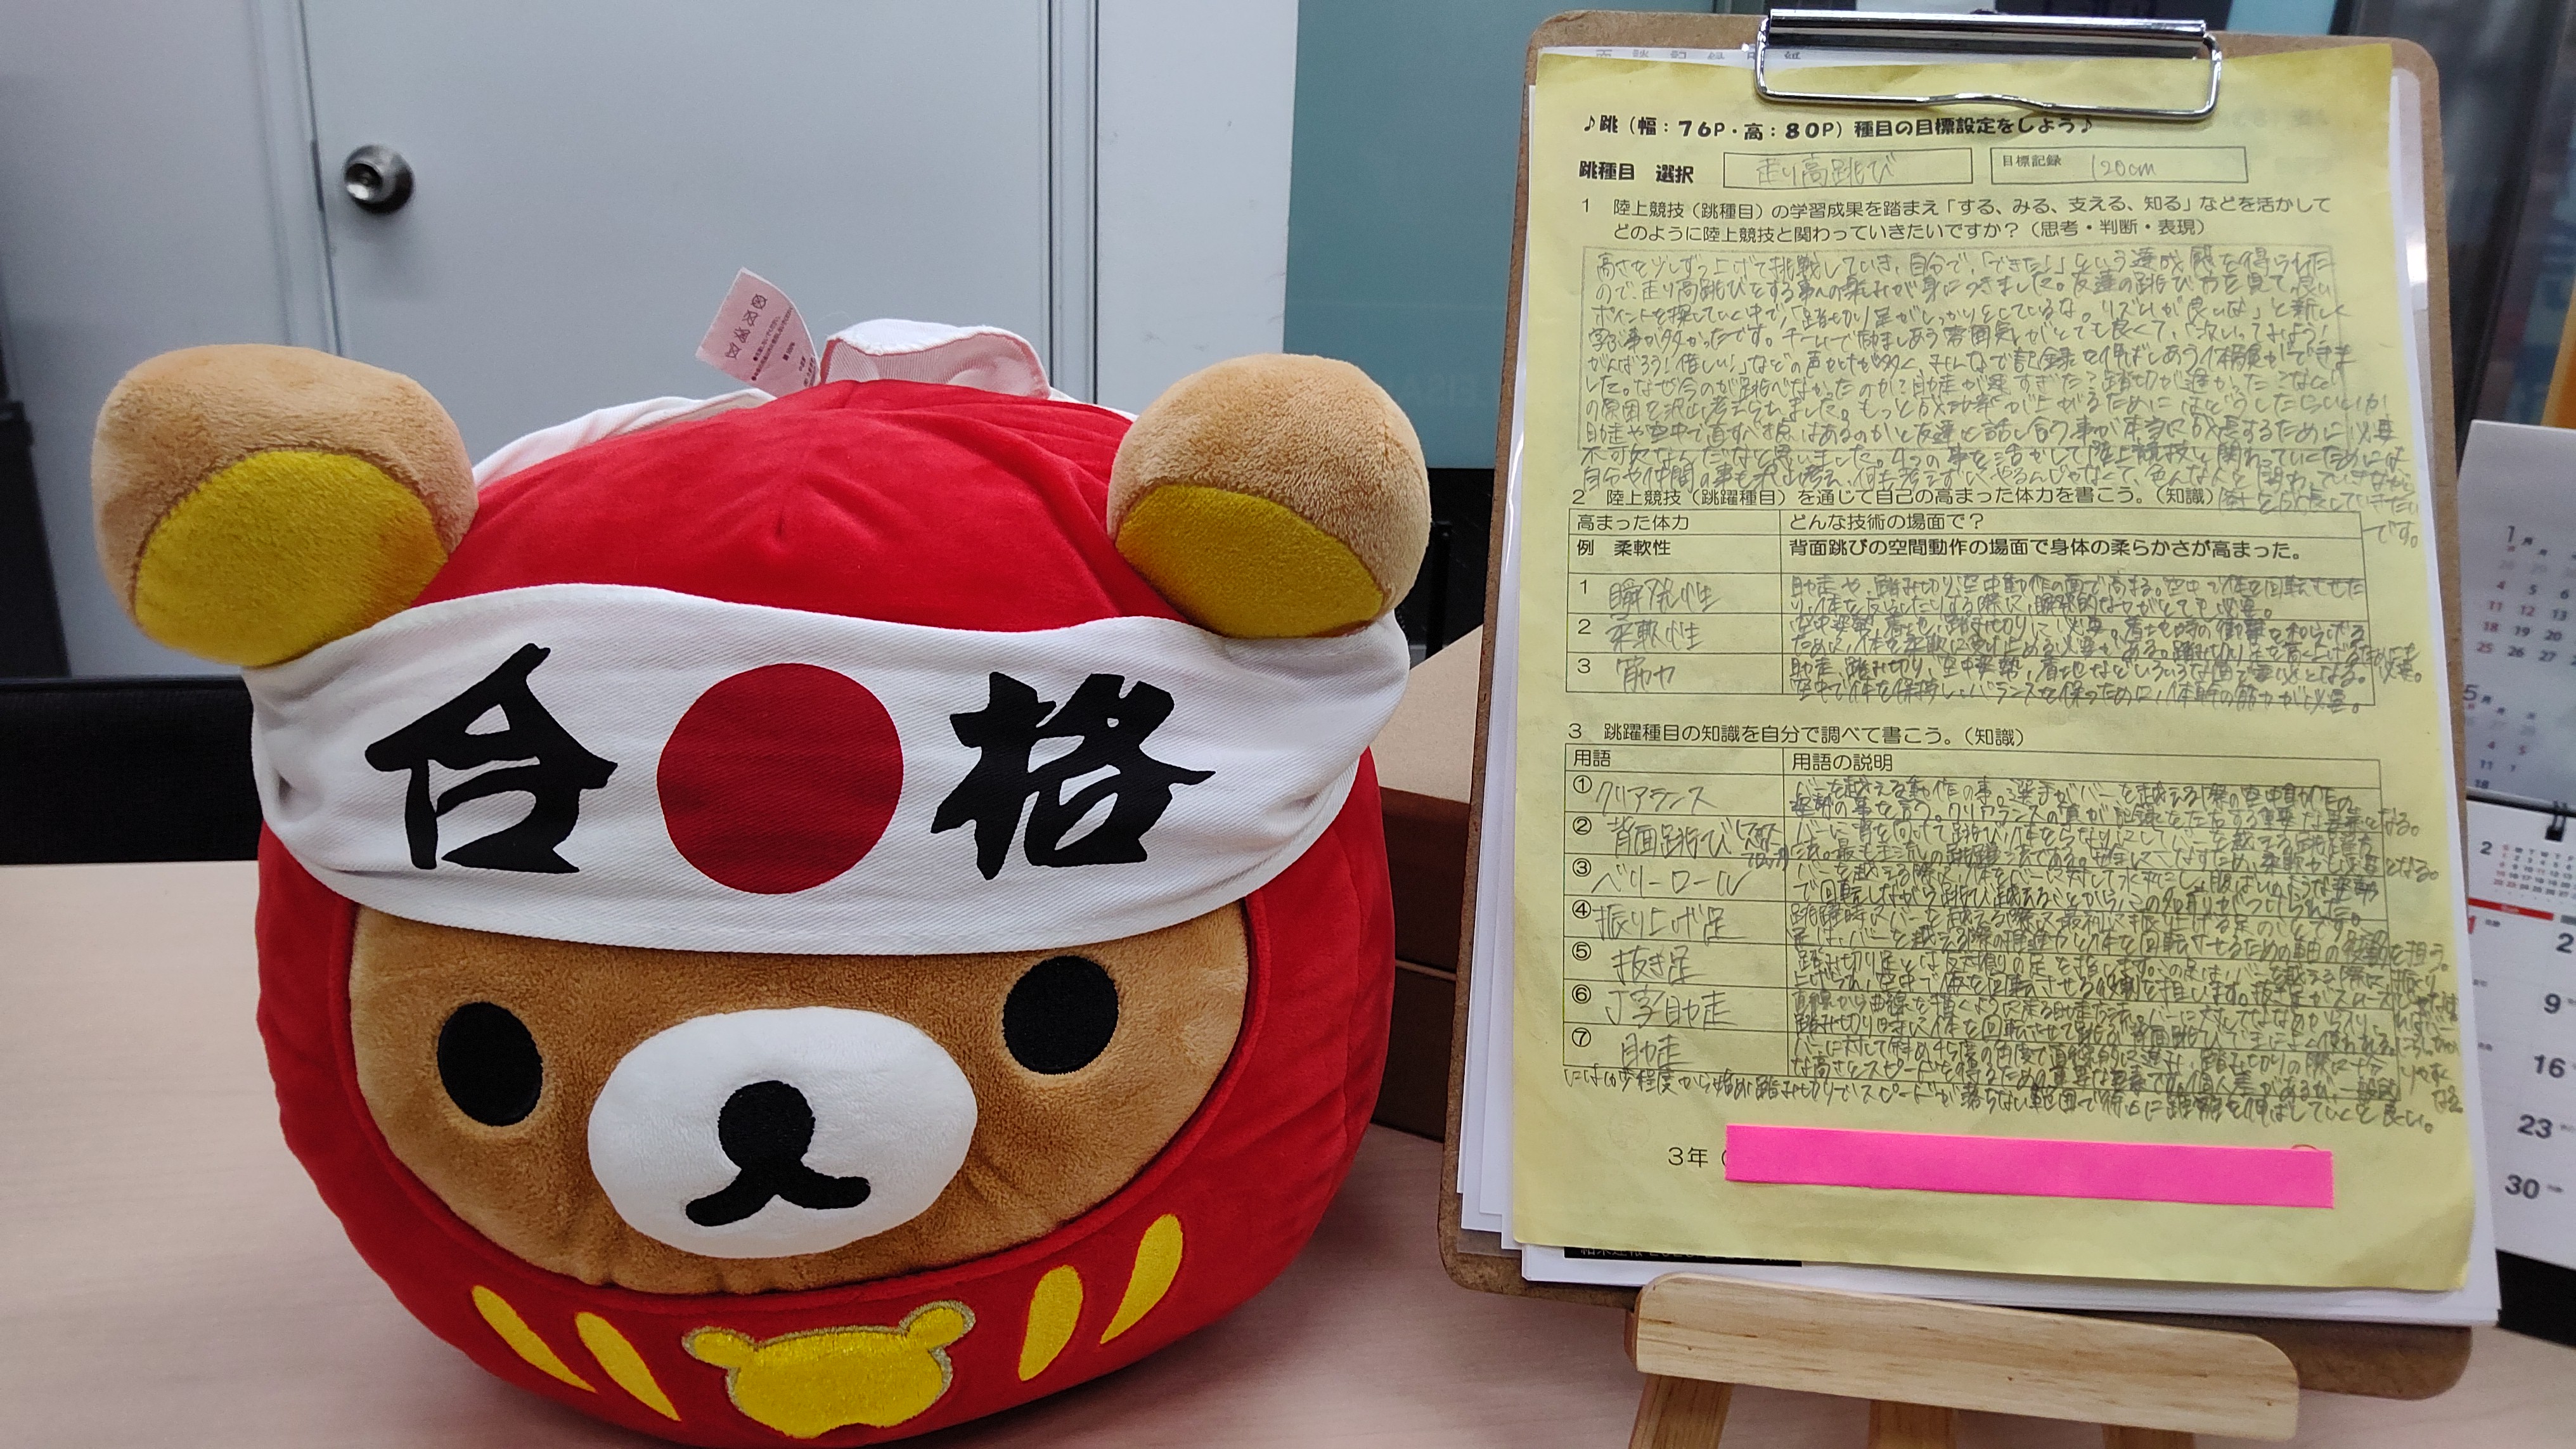 合格
♪跳（幅：７６P・高：８０P）種目の目標設定をしよう♪
跳種目　選択　走り高跳び　目標記録　120cm
1　陸上競技（跳種目）の学習成果を踏まえ「する、みる、支える、知る」などを活かして
どのように陸上競技と関わっていきたいですか？（思考・判断・表現）
高さを少しずつ上げて挑戦していき、自分で、「できた！」という達成感を得られた
ので、走り高跳びをする事への楽しみが身につきました。友達の跳び方を見て良い
ポイントを探していく中で、「踏み切り足がしっかりとしているな。リズムが良いな」と新しく
学ぶ事が多かったです。チームで励ましあう雰囲気がとても良くて、「次いってみよう！
がんばろう！惜しい！」などの声かけが多く、みんなで記録を伸ばしあう体験ができま
した。なぜ今のが跳べなかったのか？助走が速すぎた？踏切が遅かった？など
の原因を沢山考えられました。もっと成功率が上がるためにはどうしたらいいか
助走や空中で直すべき点はあるのかと友達と話し合う事が本当に成長するために必要
不可欠なんだなと思いました。4つの事を活かして陸上競技と関わっていくためには
自分や仲間の事も沢山考え、何も考えずにやるんじゃなくて、色んな人と関わっていきながら
2　陸上競技（跳躍種目）を通じて自己の高まった体力を書こう。（知識）
成長していきたい
です。
高まった体力　どんな技術の場面で？
例　柔軟性　背面跳びの空間動作の場面で身体の柔らかさが高まった。
1　瞬発性　助走や、踏み切り、空中動作の面で高まる。空中で体を回転させた
り、体を反らしたりする際に、瞬発的な力がとても必要。
2　柔軟性　空中姿勢、着地、踏み切りに必要。着地時の衝撃を和らげる
ために、体を柔軟に受け止める必要がある。
3　筋力　助走、踏み切り、空中姿勢、着地などいろいろな面で必要となる。
空中で体を保持し、バランスを保つために、体幹の筋力が必要。
3　跳躍種目の知識を自分で調べて書こう。（知識）
用語　用語の説明
① クリアランス　バーを越える動作の事。選手がバーを越える際の空中動作の
姿勢の事を言う。クリアランスの質が記録を左右する重要な要素となる。
② 背面跳び　バーに背を向けて跳び、体をそらすようにしてバーを越える跳躍方
法。最も主流の跳躍法である。
③ ベリーロール　バーを越える際に体をバーに対して水平にし、腹ばいのような姿勢
で回転しながら跳び越えることからこの名前がつけられた。
④ 振り上げ足　跳躍時にバーを越える際に最初に振り上げる足のことです。
足は、バーを越える際の推進力と体を回転させるための軸の役割を担う。
⑤ 抜き足　踏み切り足とは反対側の足を指します。この足はバーを越える際に振り
上げられ、空中で体を回転させる役割を担います。
⑥ J字助走　直線から曲線を描くように走る助走方法。
踏み切り時に体を回転させて跳ぶ背面跳びで主によく使われる。
⑦ 助走　バーに対して斜め45度の角度で直線的に進み、踏み切りの際に十分
な高さとスピードを得るための重要な要素です。個人差があるが、一般的
には10歩程度から始め踏み切りでスピードが落ちない範囲で徐々に距離を伸ばしていくと良い。
3年（
1月
4 5 6
11 12 13
18 19 20
25 26 27
5月
4 5
11
18
2
2
9
16
23
30